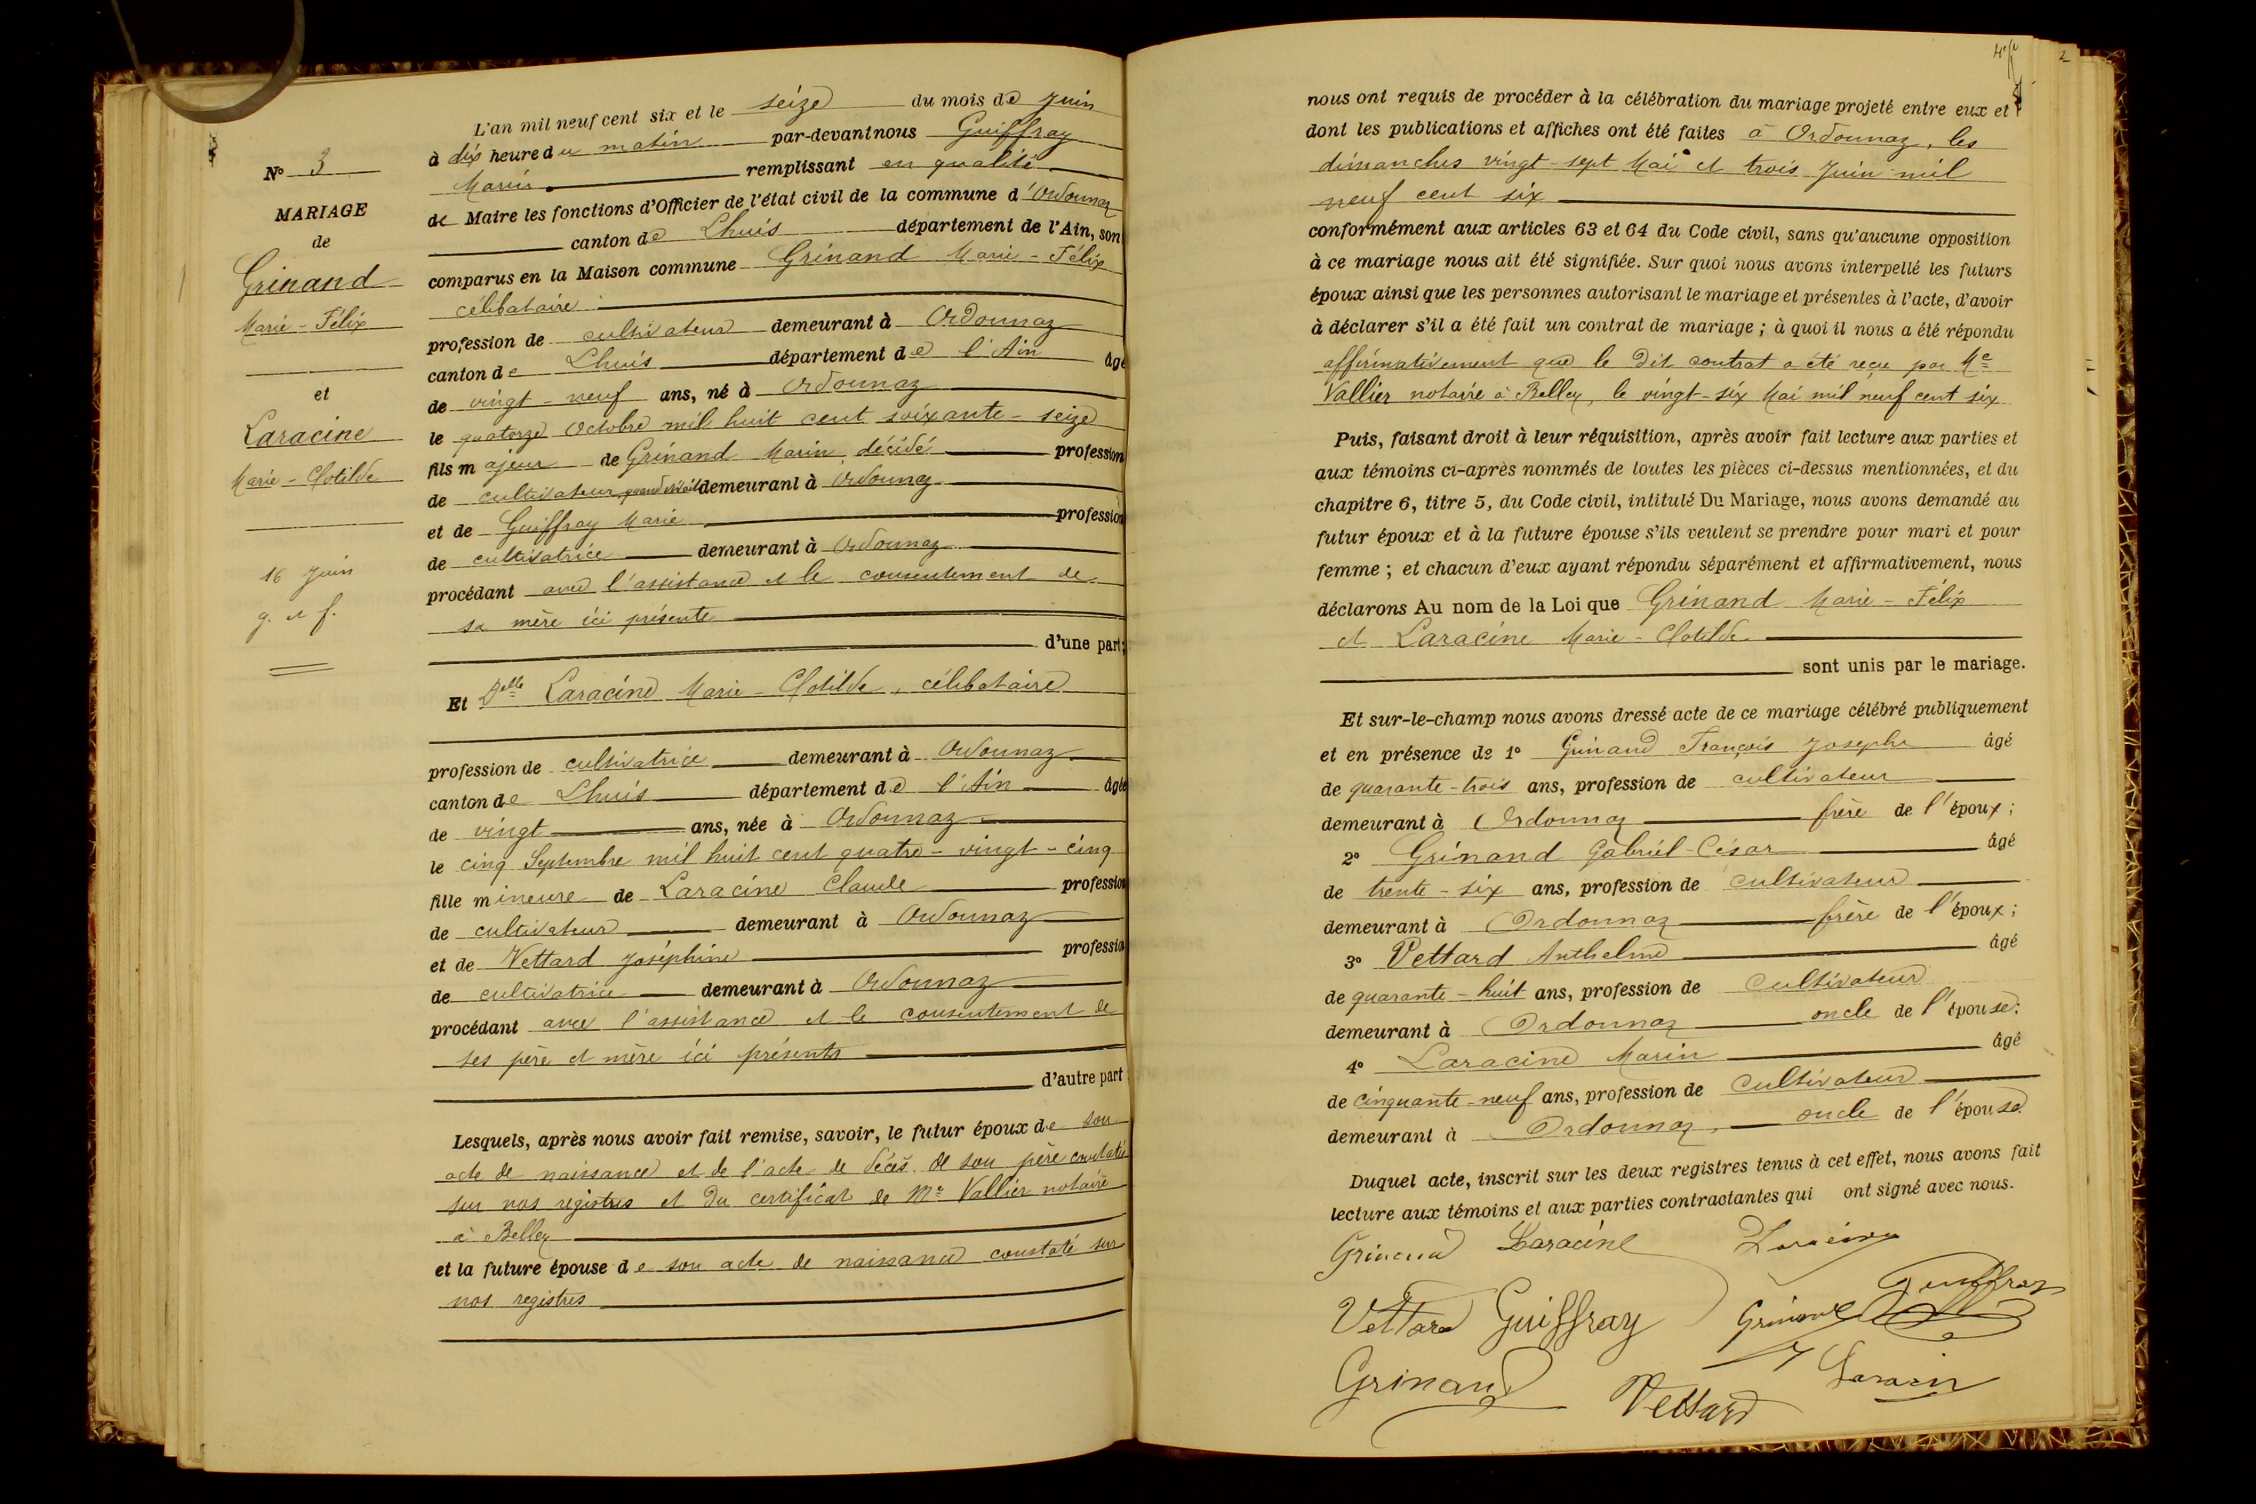 N° 3
MARIAGE
de
Grinand
Marie - Félix
et
Laracine
Marie - Clotilde
16 Juin
g. et f.
L'an mil neuf cent six et le seize du mois de Juin
à dix heure du matin par-devant nous Guiffray
Marin remplissant en qualité
de Maire les fonctions d'Officier de l'état civil de la commune d'Ordonnaz
canton de Lhuis département de l'Ain, son
comparus en la Maison commune Grinand Marie - Félix
célibataire
profession de cultivateur demeurant à Ordonnaz
canton de Lhuis département de l'Ain âgé
de vingt - neuf ans, né à Ordonnaz
le quatorze Octobre mil huit cent soixante - seize
fils majeur de Grinand Marin, décédé profession
de cultivateur quand vivait demeurant à Ordonnaz
et de Guiffray Marie profession
de cultivatrice demeurant à Ordonnaz
procédant avec l'assistance et le consentement de
sa mère ici présente
d'une part;
Et Delle Laracine Marie - Clotilde, célibataire
profession de cultivatrice demeurant à Ordonnaz
canton de Lhuis département de l'Ain âgée
de vingt ans, née à Ordonnaz
le cinq Septembre mil huit cent quatre - vingt - cinq
fille mineure de Laracine Claude profession
de cultivateur demeurant à Ordonnaz
et de Vettard Joséphine professio
de cultivatrice demeurant à Ordonnaz
procédant avec l'assistance et le consentement de
ses père et mère ici présents
d'autre part
Lesquels, après nous avoir fait remise, savoir, le futur époux de son
acte de naissance et de l'acte de décès de son père constatés
sur nos registres et du certificat de Me Vallier notaire
à Belley
et la future épouse de son acte de naissance constaté sur
nos registres
2
nous ont requis de procéder à la célébration du mariage projeté entre eux et
dont les publications et affiches ont été faites à Ordonnaz, les
dimanches vingt - sept Mai et trois Juin mil
neuf cent six
conformément aux articles 63 et 64 du Code civil, sans qu'aucune opposition
à ce mariage nous ait été signifiée. Sur quoi nous avons interpellé les futurs
époux ainsi que les personnes autorisant le mariage et présentes à l'acte, d'avoir
à déclarer s'il a été fait un contrat de mariage ; à quoi il nous a été répondu
affirmativement que le dit contrat a été reçu par Me
Vallier notaire à Belley, le vingt - six Mai mil neuf cent six
Puis, faisant droit à leur réquisition, après avoir fait lecture aux parties et
aux témoins ci-après nommés de toutes les pièces ci-dessus mentionnées, et du
chapitre 6, titre 5, du Code civil, intitulé Du Mariage, nous avons demandé au
futur époux et à la future épouse s'ils veulent se prendre pour mari et pour
femme ; et chacun d'eux ayant répondu séparément et affirmativement, nous
déclarons Au nom de la Loi que Grinand Marie - Félix
et Laracine Marie - Clotilde
sont unis par le mariage.
Et sur-le-champ nous avons dressé acte de ce mariage célébré publiquement
et en présence de 1° Grinand François Joseph âgé
de quarante - trois ans, profession de cultivateur
demeurant à Ordonnaz frère de l'époux ;
2° Grinand Gabriel - César âgé
de trente - six ans, profession de cultivateur
demeurant à Ordonnaz frère de l'époux ;
3° Vettard Anthelme âgé
de quarante - huit ans, profession de Cultivateur
demeurant à Ordonnaz oncle de l'épouse ;
4° Laracine Marin âgé
de cinquante - neuf ans, profession de Cultivateur
demeurant à Ordonnaz, oncle de l'épouse.
Duquel acte, inscrit sur les deux registres tenus à cet effet, nous avons fait
lecture aux témoins et aux parties contractantes qui ont signé avec nous.
Grinand Laracine Laracine
Guiffray
Vettard Guiffray Grinand
Grinand Vettard Laracin